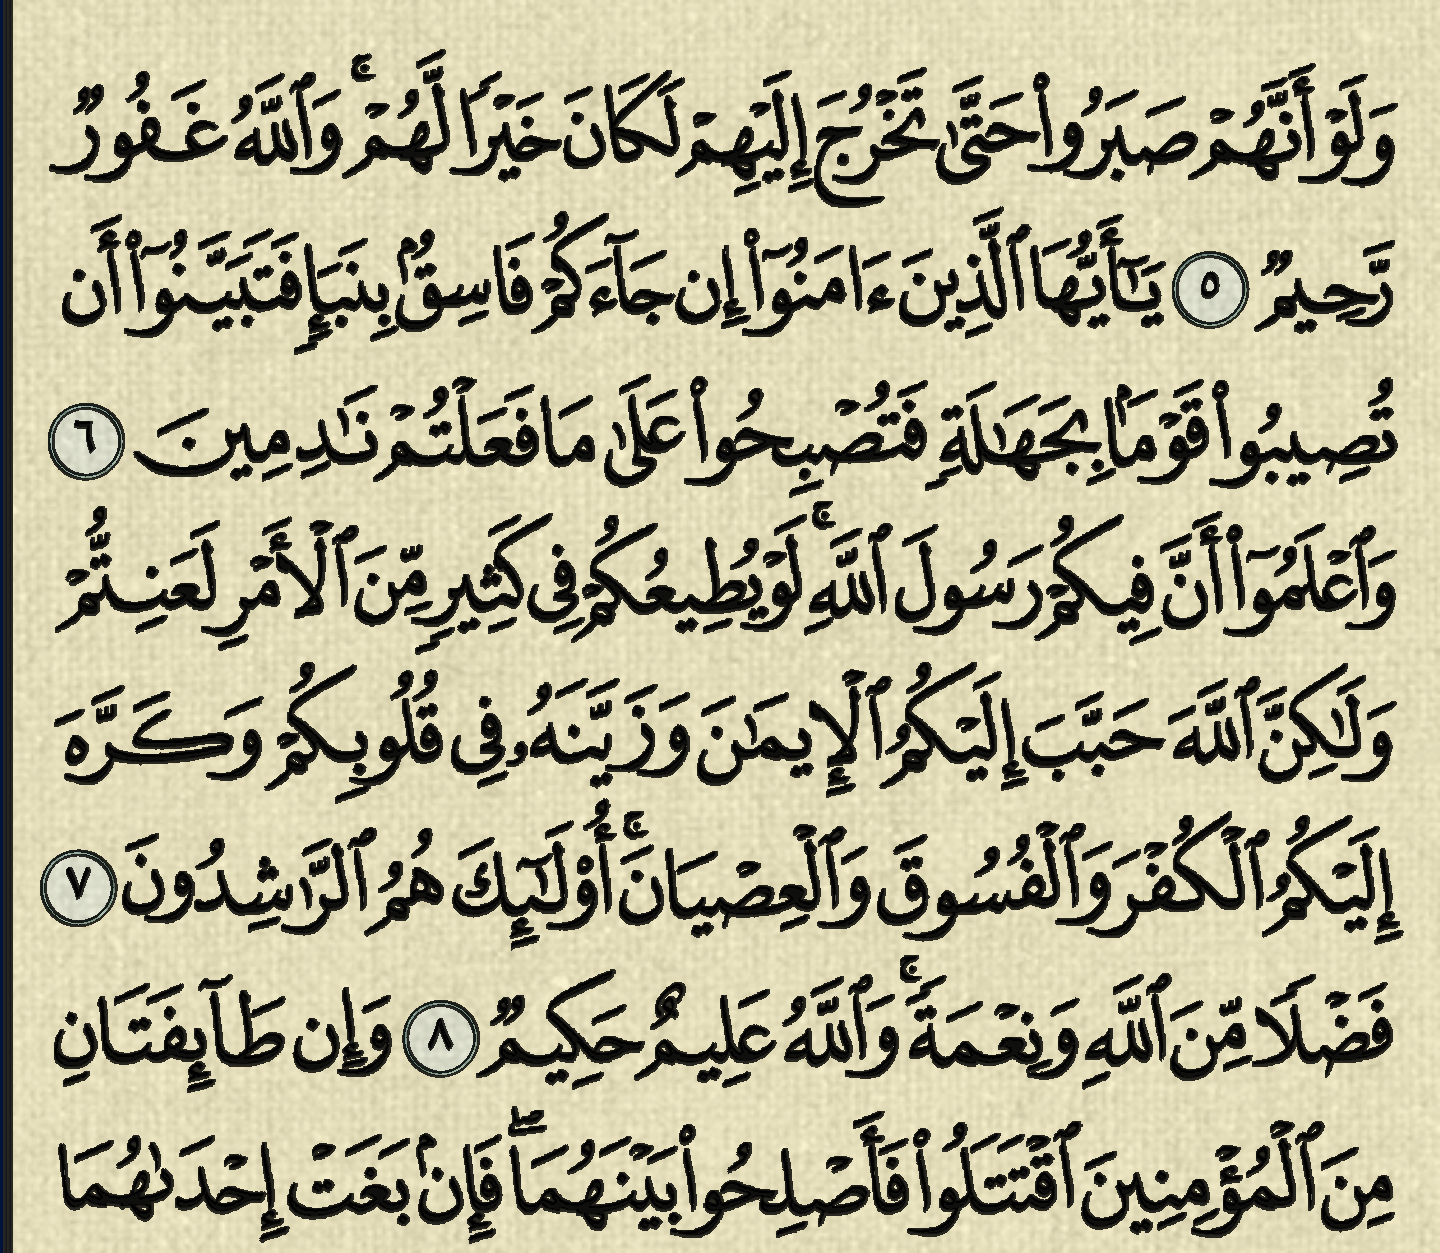 وَلَوْ أَنَّهُمْ صَبَرُوا۟ حَتَّىٰ تَخْرُجَ إِلَيْهِمْ لَكَانَ خَيْرًا لَّهُمْ ۚ وَٱللَّهُ غَفُورٌ
رَّحِيمٌ ٥ يَـٰٓأَيُّهَا ٱلَّذِينَ ءَامَنُوٓا۟ إِن جَآءَكُمْ فَاسِقٌۢ بِنَبَإٍ فَتَبَيَّنُوٓا۟ أَن
تُصِيبُوا۟ قَوْمًۢا بِجَهَـٰلَةٍ فَتُصْبِحُوا۟ عَلَىٰ مَا فَعَلْتُمْ نَـٰدِمِينَ ٦
وَٱعْلَمُوٓا۟ أَنَّ فِيكُمْ رَسُولَ ٱللَّهِ ۚ لَوْ يُطِيعُكُمْ فِى كَثِيرٍ مِّنَ ٱلْأَمْرِ لَعَنِتُّمْ
وَلَـٰكِنَّ ٱللَّهَ حَبَّبَ إِلَيْكُمُ ٱلْإِيمَـٰنَ وَزَيَّنَهُۥ فِى قُلُوبِكُمْ وَكَرَّهَ
إِلَيْكُمُ ٱلْكُفْرَ وَٱلْفُسُوقَ وَٱلْعِصْيَانَ ۚ أُو۟لَـٰٓئِكَ هُمُ ٱلرَّٰشِدُونَ ٧
فَضْلًا مِّنَ ٱللَّهِ وَنِعْمَةً ۚ وَٱللَّهُ عَلِيمٌ حَكِيمٌ ٨ وَإِن طَآئِفَتَانِ
مِنَ ٱلْمُؤْمِنِينَ ٱقْتَتَلُوا۟ فَأَصْلِحُوا۟ بَيْنَهُمَا ۖ فَإِنۢ بَغَتْ إِحْدَىٰهُمَا